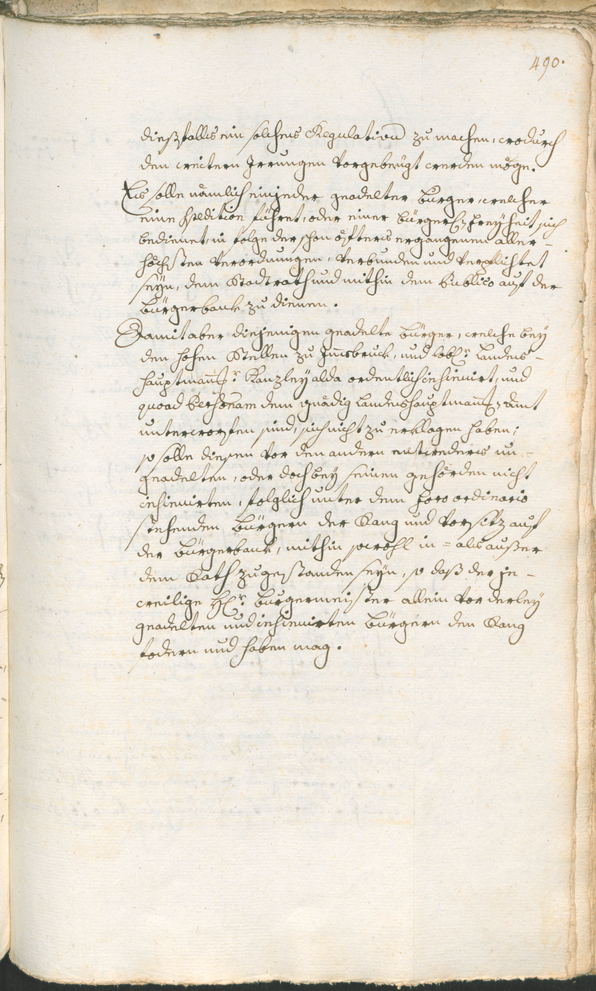 490.
dießfalls ein solches Regulativ zu machen, wodurch
den weitern Irrungen vorgebeugt werden möge.
Es solle nämlich ein jeder geadelter Burger, welcher
eine Spedition führet, oder einer Bürgerl: Freyheit sich
bedienet, in folge der schon öfters ergangenen aller-
höchsten Verordnungen, verbunden und verpflichtet
seyn, dem Stadtrath und mithin dem Publico auf der
Bürgerbank zu dienen.
Damit aber diejenigen geadelte Bürger, welche bey
den hohen Stellen zu Innsbruck, und löbl: Landes-
hauptmannsr: Kanzley alda ordentlich insinuirt, und
quoad Personam dem gnädig Landeshauptmannsr: Amt
unterworfen sind, sich nicht zu erklagen haben;
so solle diesen vor den andern entweders un-
geadelten, oder doch bey seinen gehörden nicht
insinuirten, folglich unter dem Foro ordinario
stehenden Bürgern der Rang und Vorsitz auf
der Bürgerbank, mithin sowohl in- als außer
dem Rath zugestanden seyn, so daß der je-
weilige Hr: Burgermeister allein vor derley
geadelten und insinuirten Bürgern den Rang
fodern und haben mag.